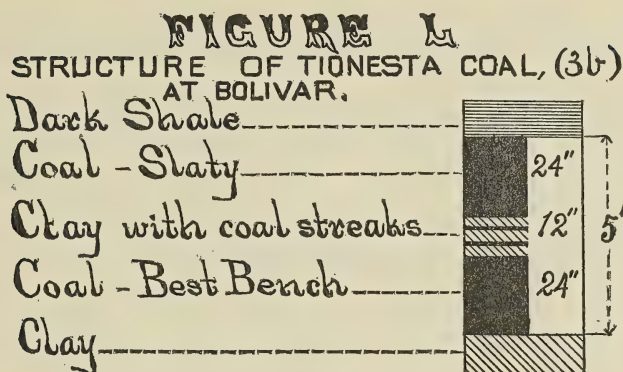 FIGURE L
STRUCTURE OF TIONESTA COAL, (3b)
AT BOLIVAR.
Dark Shale
Coal - Slaty 24"
Clay with coal streaks 12" 5'
Coal - Best Bench 24"
Clay